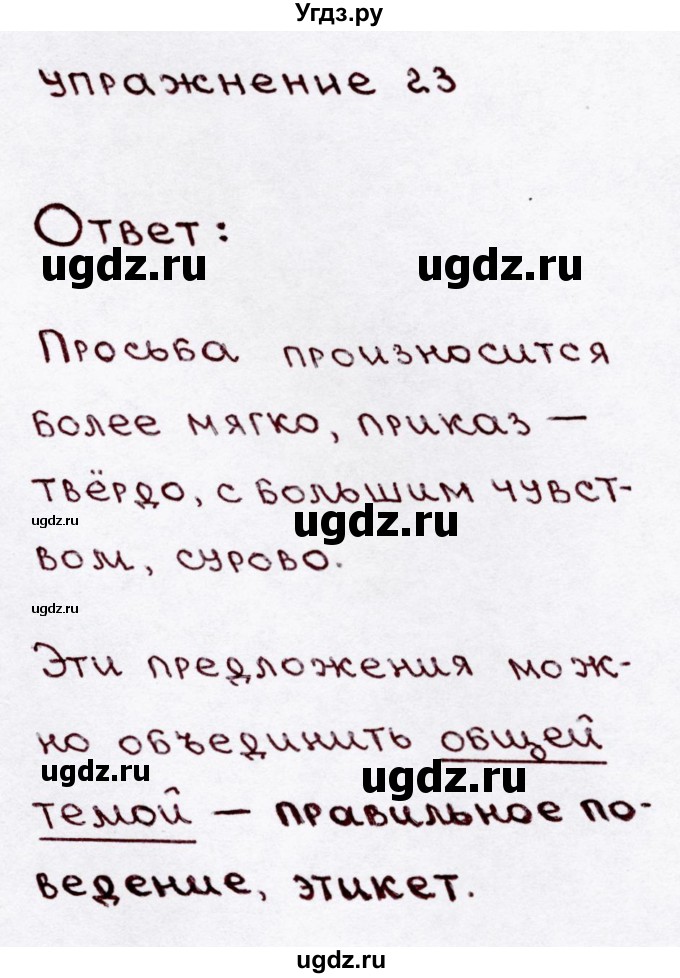 Угдз.ру
упражнение 23
Ответ:
ugdz.ru ugdz.ru
Просьба произносится
более мягко, приказ —
твёрдо, с большим чувст-
ugdz.ru ugdz.ru
вом, сурово.
ugdz.ru
Эти предложения мож-
но объединить общей
ugdz.ru ugdz.ru
темой — правильное по-
ведение, этикет.
ugdz.ru